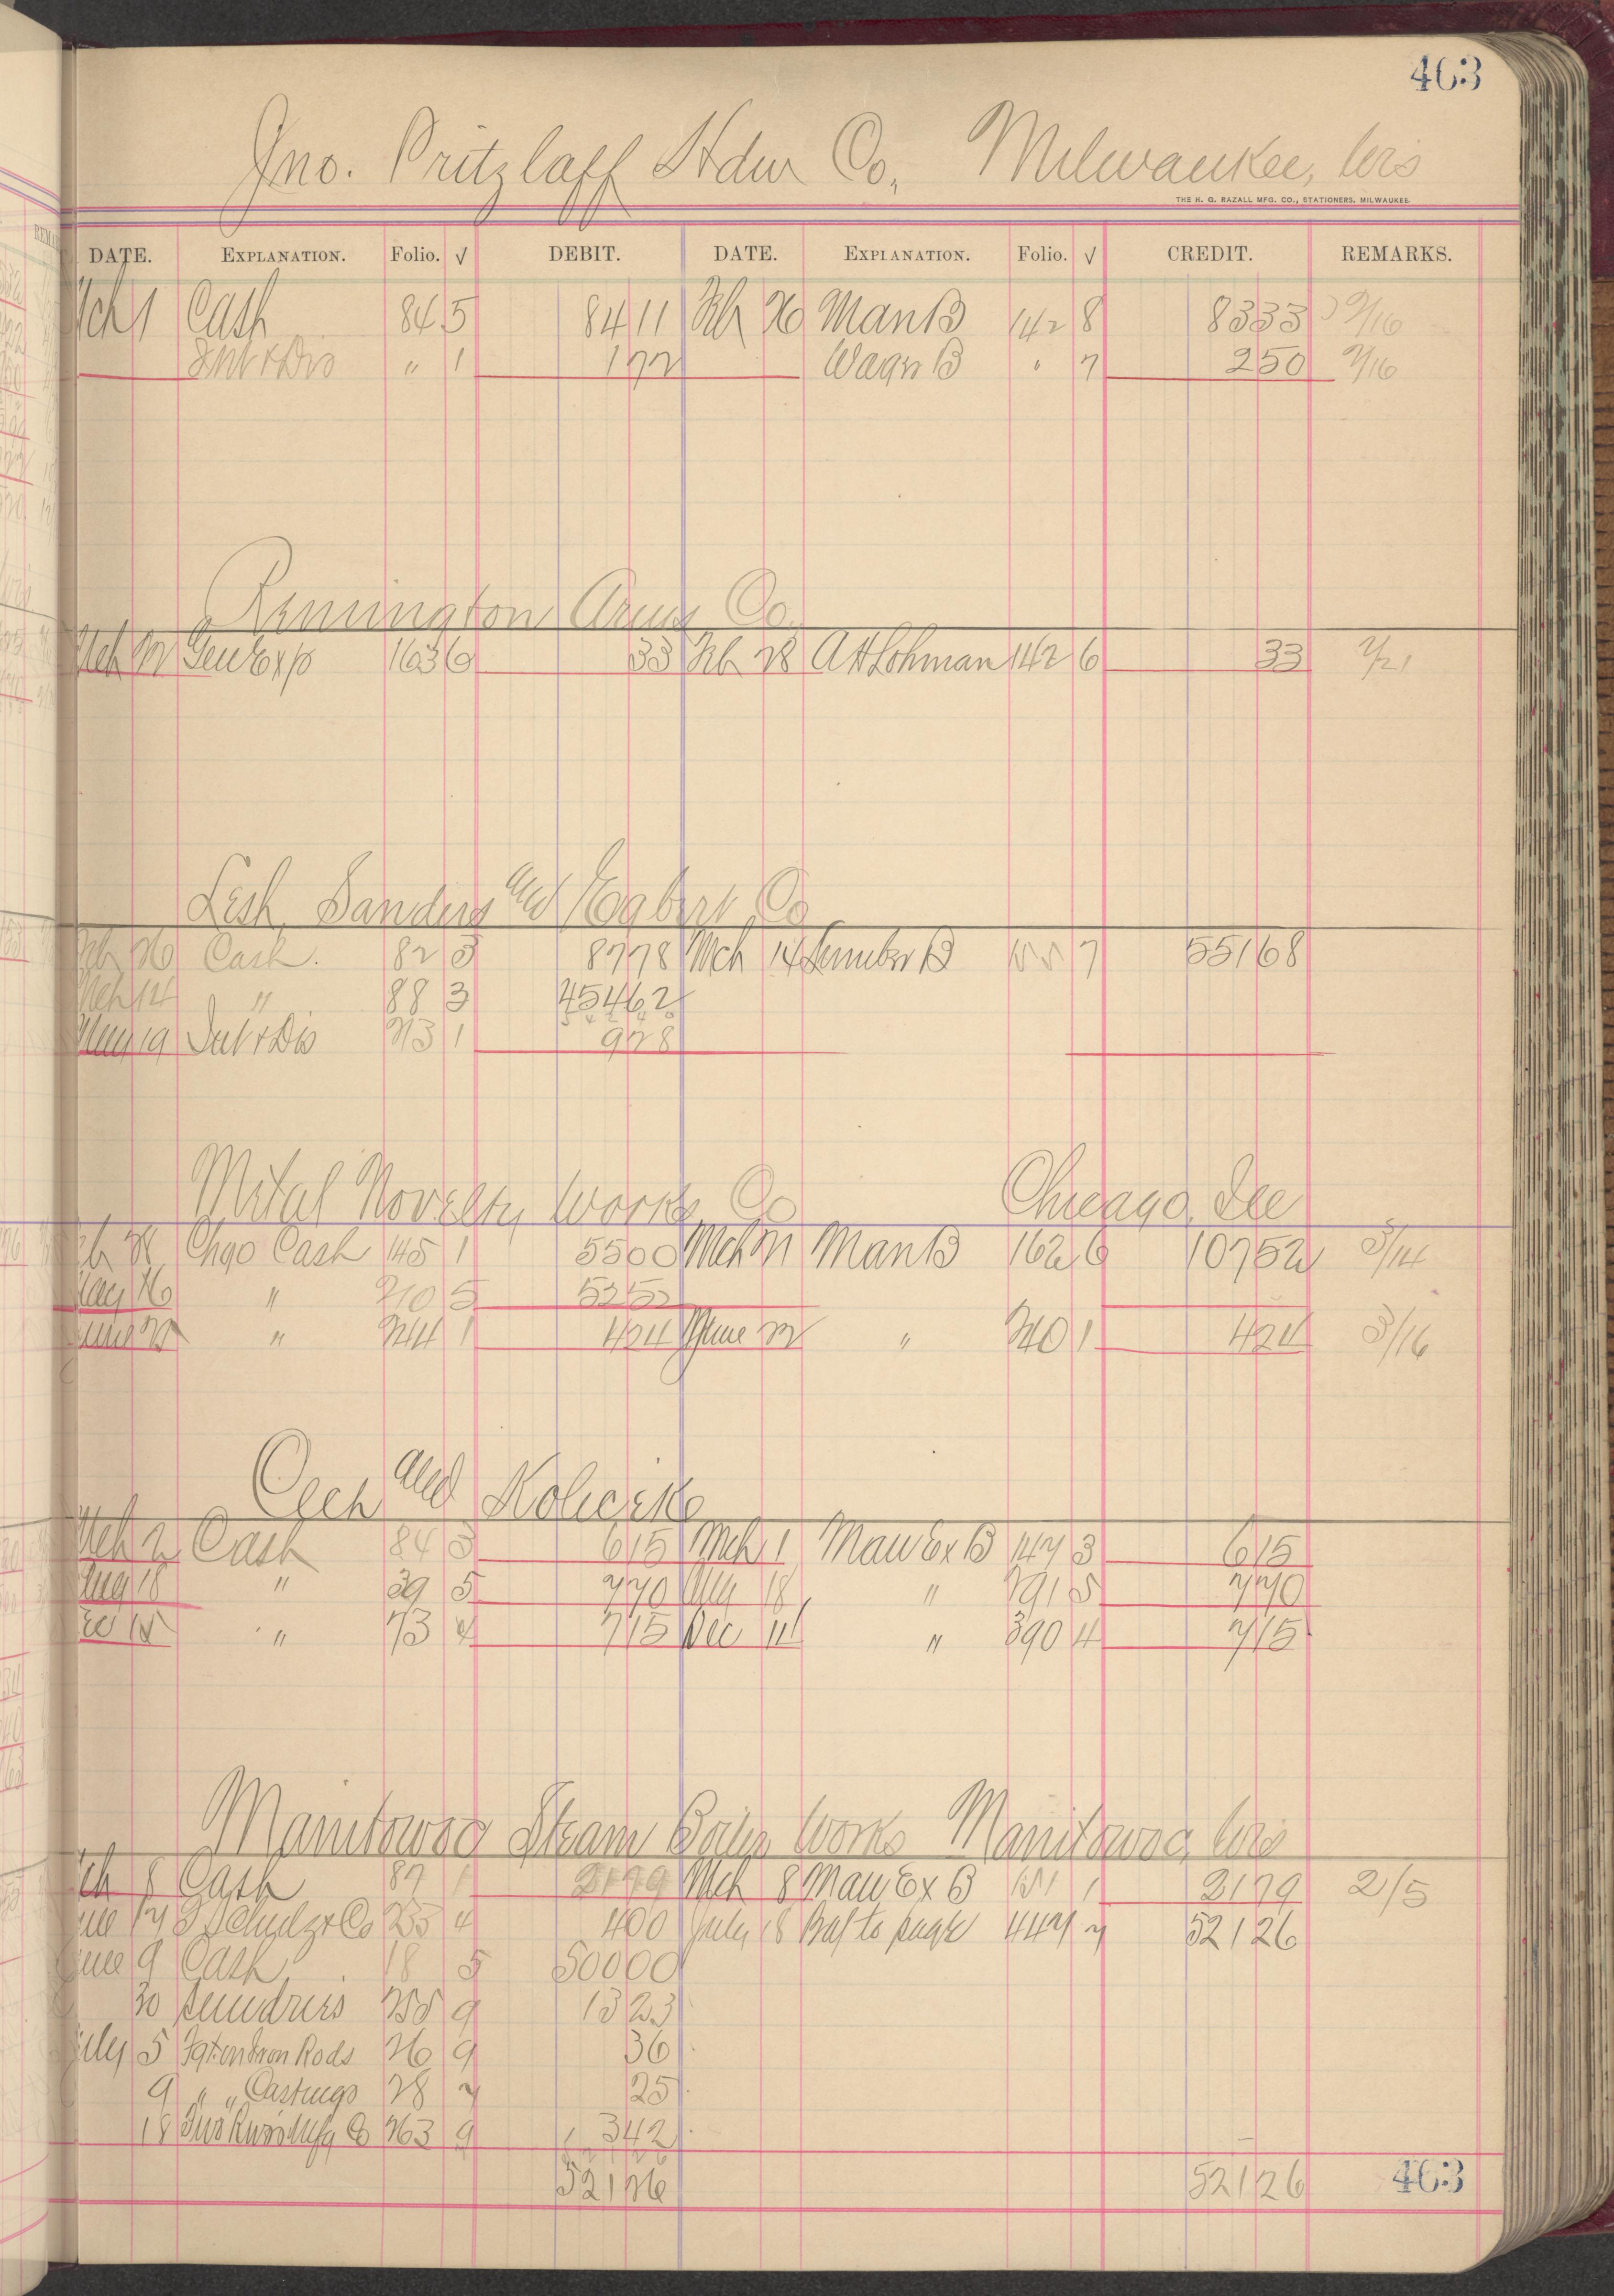 463
Jno. Pritzlaff Hdw Co, Milwaukee, Wis
THE H. G. RAZALL MFG. CO., STATIONERS, MILWAUKEE.
DATE. EXPLANATION. Folio. √ DEBIT. DATE. EXPLANATION. Folio. √ CREDIT. REMARKS.
Mch 1 Cash 84 5 84 11 Feb 26 Man B 142 8 83 33 2/16
Int & Dis " 1 1 72 Wagn B " 7 2 50 2/16
Remington Arms Co.
Mch 22 Gen Exp 163 6 33 Feb 28 A H Lohman 142 6 33 2/21
Lesh, Sanders and Egbert Co
Feb 26 Cash. 82 3 87 78 Mch 14 Lumber B 155 7 551 68
Mch 14 " 88 3 454 62
May 19 Int & Dis 213 1 9 28
Metal Novelty Works Co Chicago, Ill
Feb 28 Chgo Cash 145 1 55 00 Mch 21 Man B 162 6 107 52 3/14
May 16 " 210 5 52 52
June 25 " 244 1 4 24 June 22 " 240 1 4 24 3/16
Cech and Koliczke
Mch 2 Cash 84 3 6 15 Mch 1 Man Ex B 147 3 6 15
Aug 18 " 39 5 7 70 Aug 18 " 291 5 7 70
Dec 15 " 73 4 7 15 Dec 11 " 390 4 7 15
Manitowoc Steam Boiler Works Manitowoc, Wis
Mch 8 Cash 87 1 21 79 Mch 8 Man Ex B 151 1 21 79 2/5
June 17 Schulz & Co 235 4 4 00 July 18 Bal to page 447 7 521 26
June 9 Cash 18 5 500 00
30 Sundries 255 9 13 23
July 5 Fgt on Iron Rods 26 9 36
9 " " Castings 28 7 25
18 Mfg Co 263 9 3 42
521 26 521 26
463